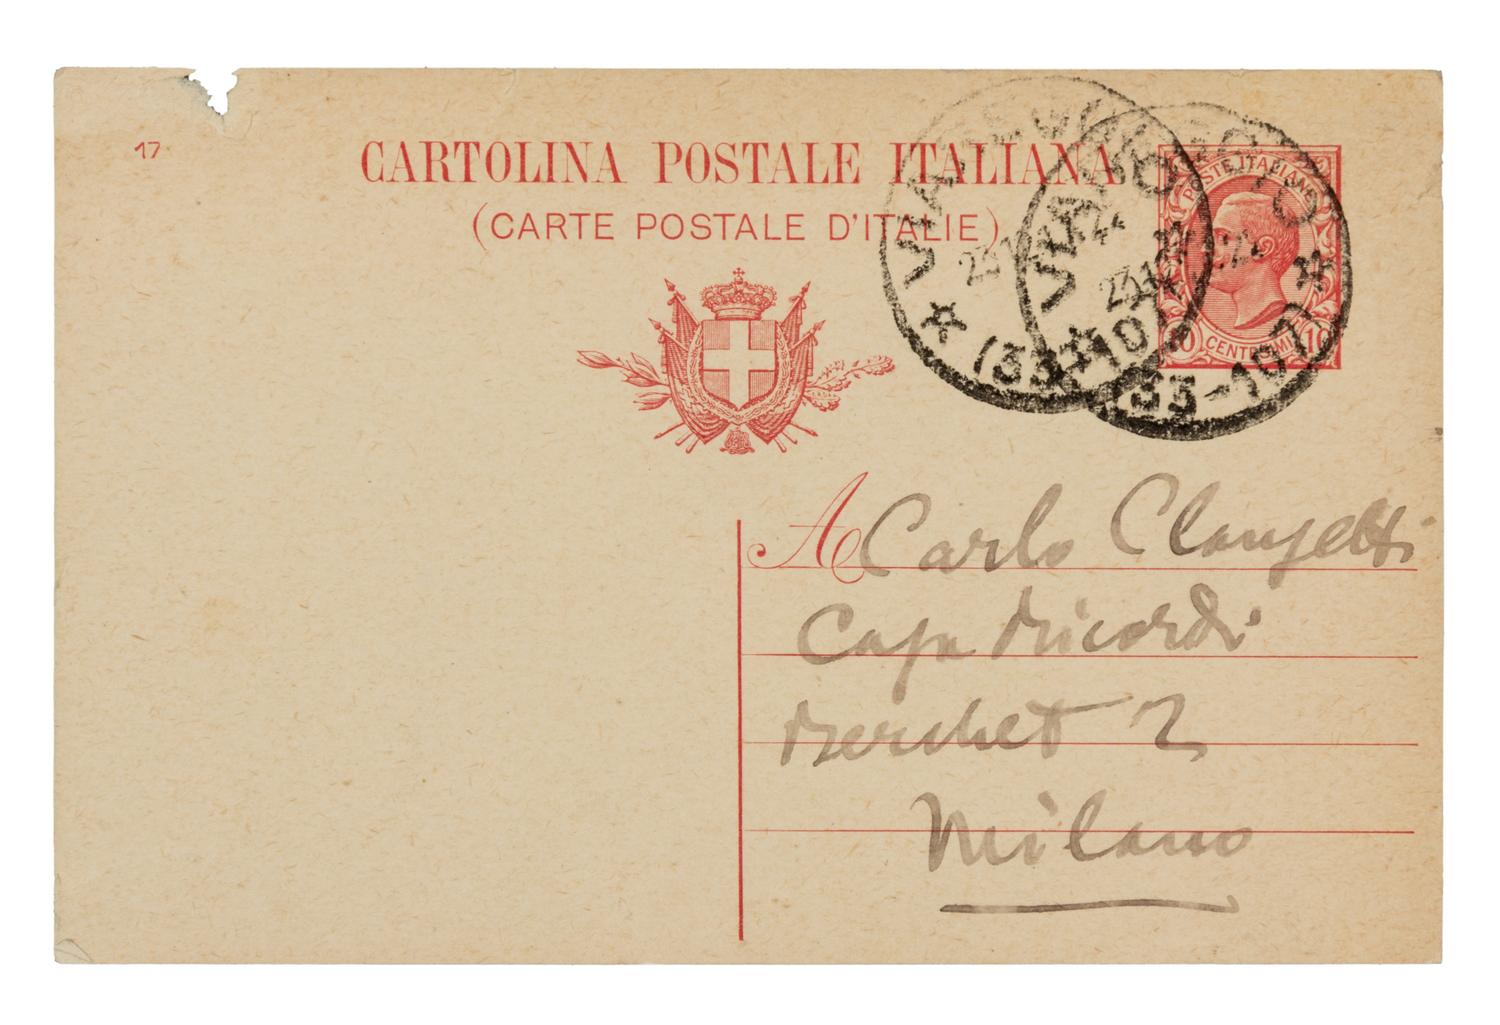 17
CARTOLINA POSTALE ITALIANA
(CARTE POSTALE D'ITALIE)
POSTE ITALIANE
10 CENTESIMI 10
VIAREGGIO
(33-107)
VIAREGGIO
(33-107)
A Carlo Clausetti
Casa Ricordi
Berchet 2
Milano